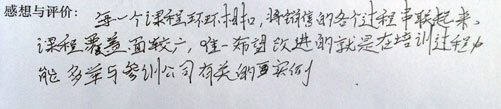 感想与评价: 每一个课程环环相扣,将销售的各个过程串联起来。
课程覆盖面较广,唯一希望改进的就是在培训过程中
能多举与参训公司有关的真实例